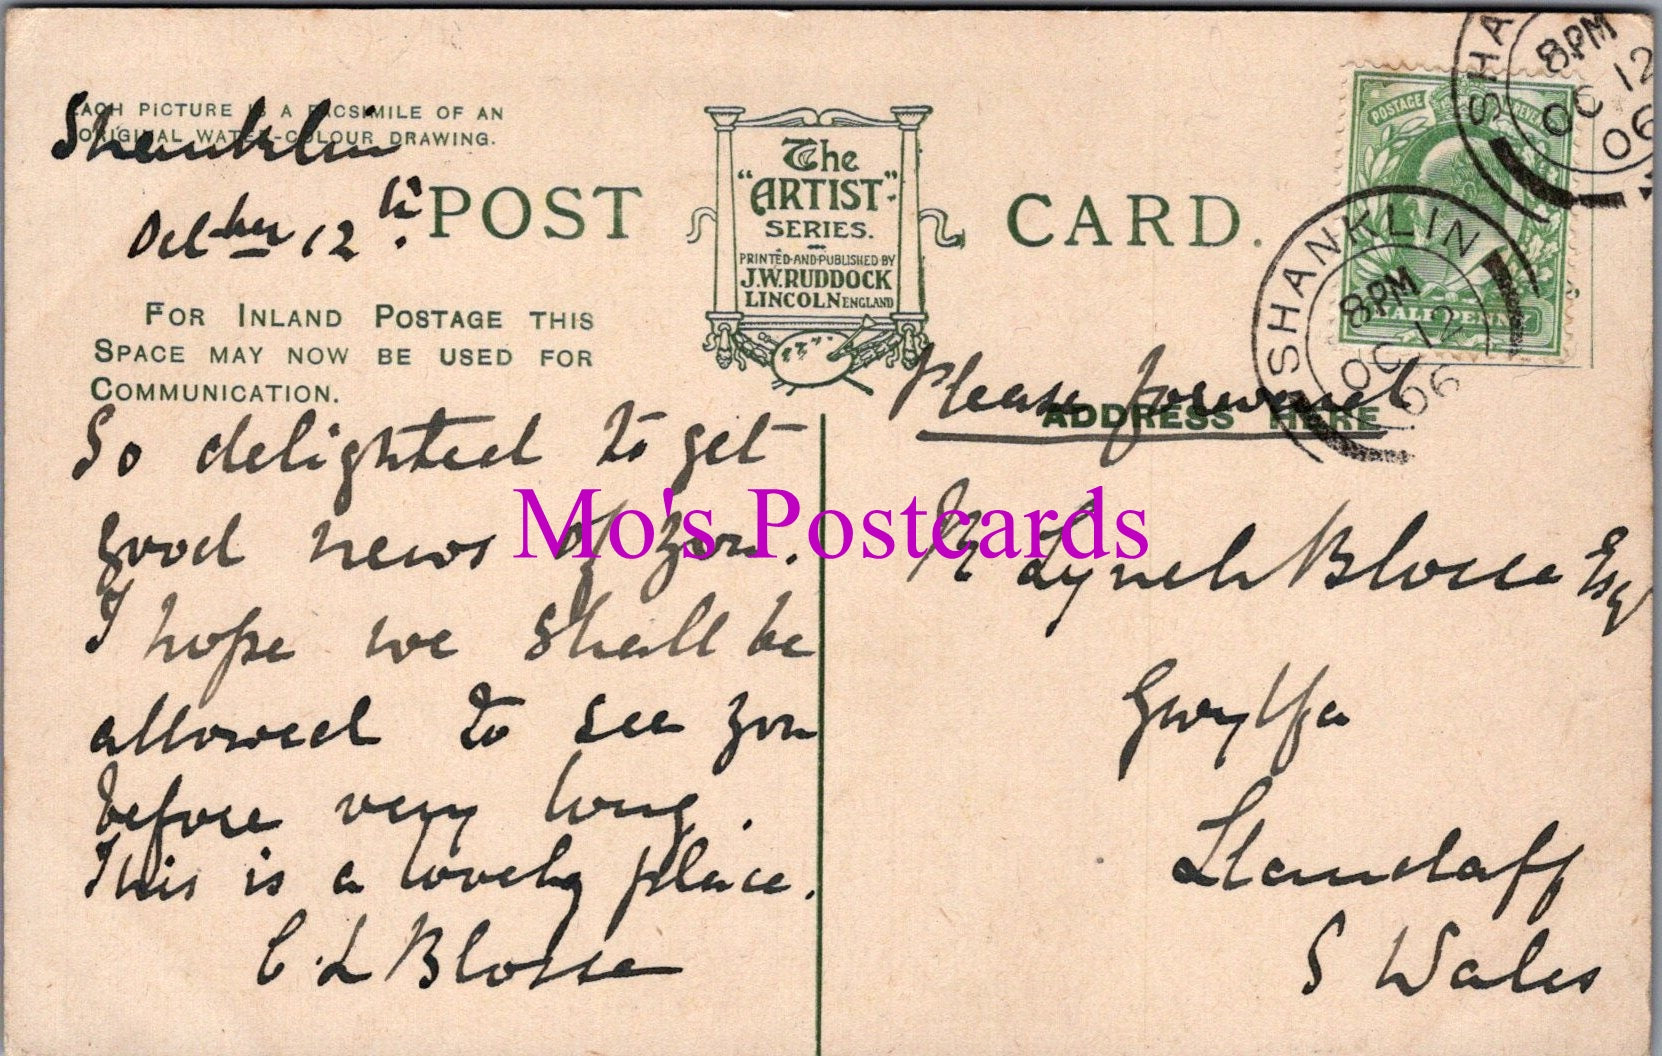 EACH PICTURE IS A FACSIMILE OF AN
ORIGINAL WATER-COLOUR DRAWING.
Shanklin
Octber 12th.
POST CARD.
The
"ARTIST"
SERIES.
PRINTED AND PUBLISHED BY
J.W. RUDDOCK
LINCOLN ENGLAND
FOR INLAND POSTAGE THIS
SPACE MAY NOW BE USED FOR
COMMUNICATION.
So delighted to get
good news of you.
I hope we shall be
allowed to see you
before very long.
This is a lovely place.
C. L Blosse
Mo's Postcards
POSTAGE REVENUE
HALF PENNY
SHANKLIN
8 PM
OC 12
06
SHA
8 PM
OC 12
06
Please forward
ADDRESS HERE
R Lynch Blosse Esq
Gwylfa
Llandaff
S Wales